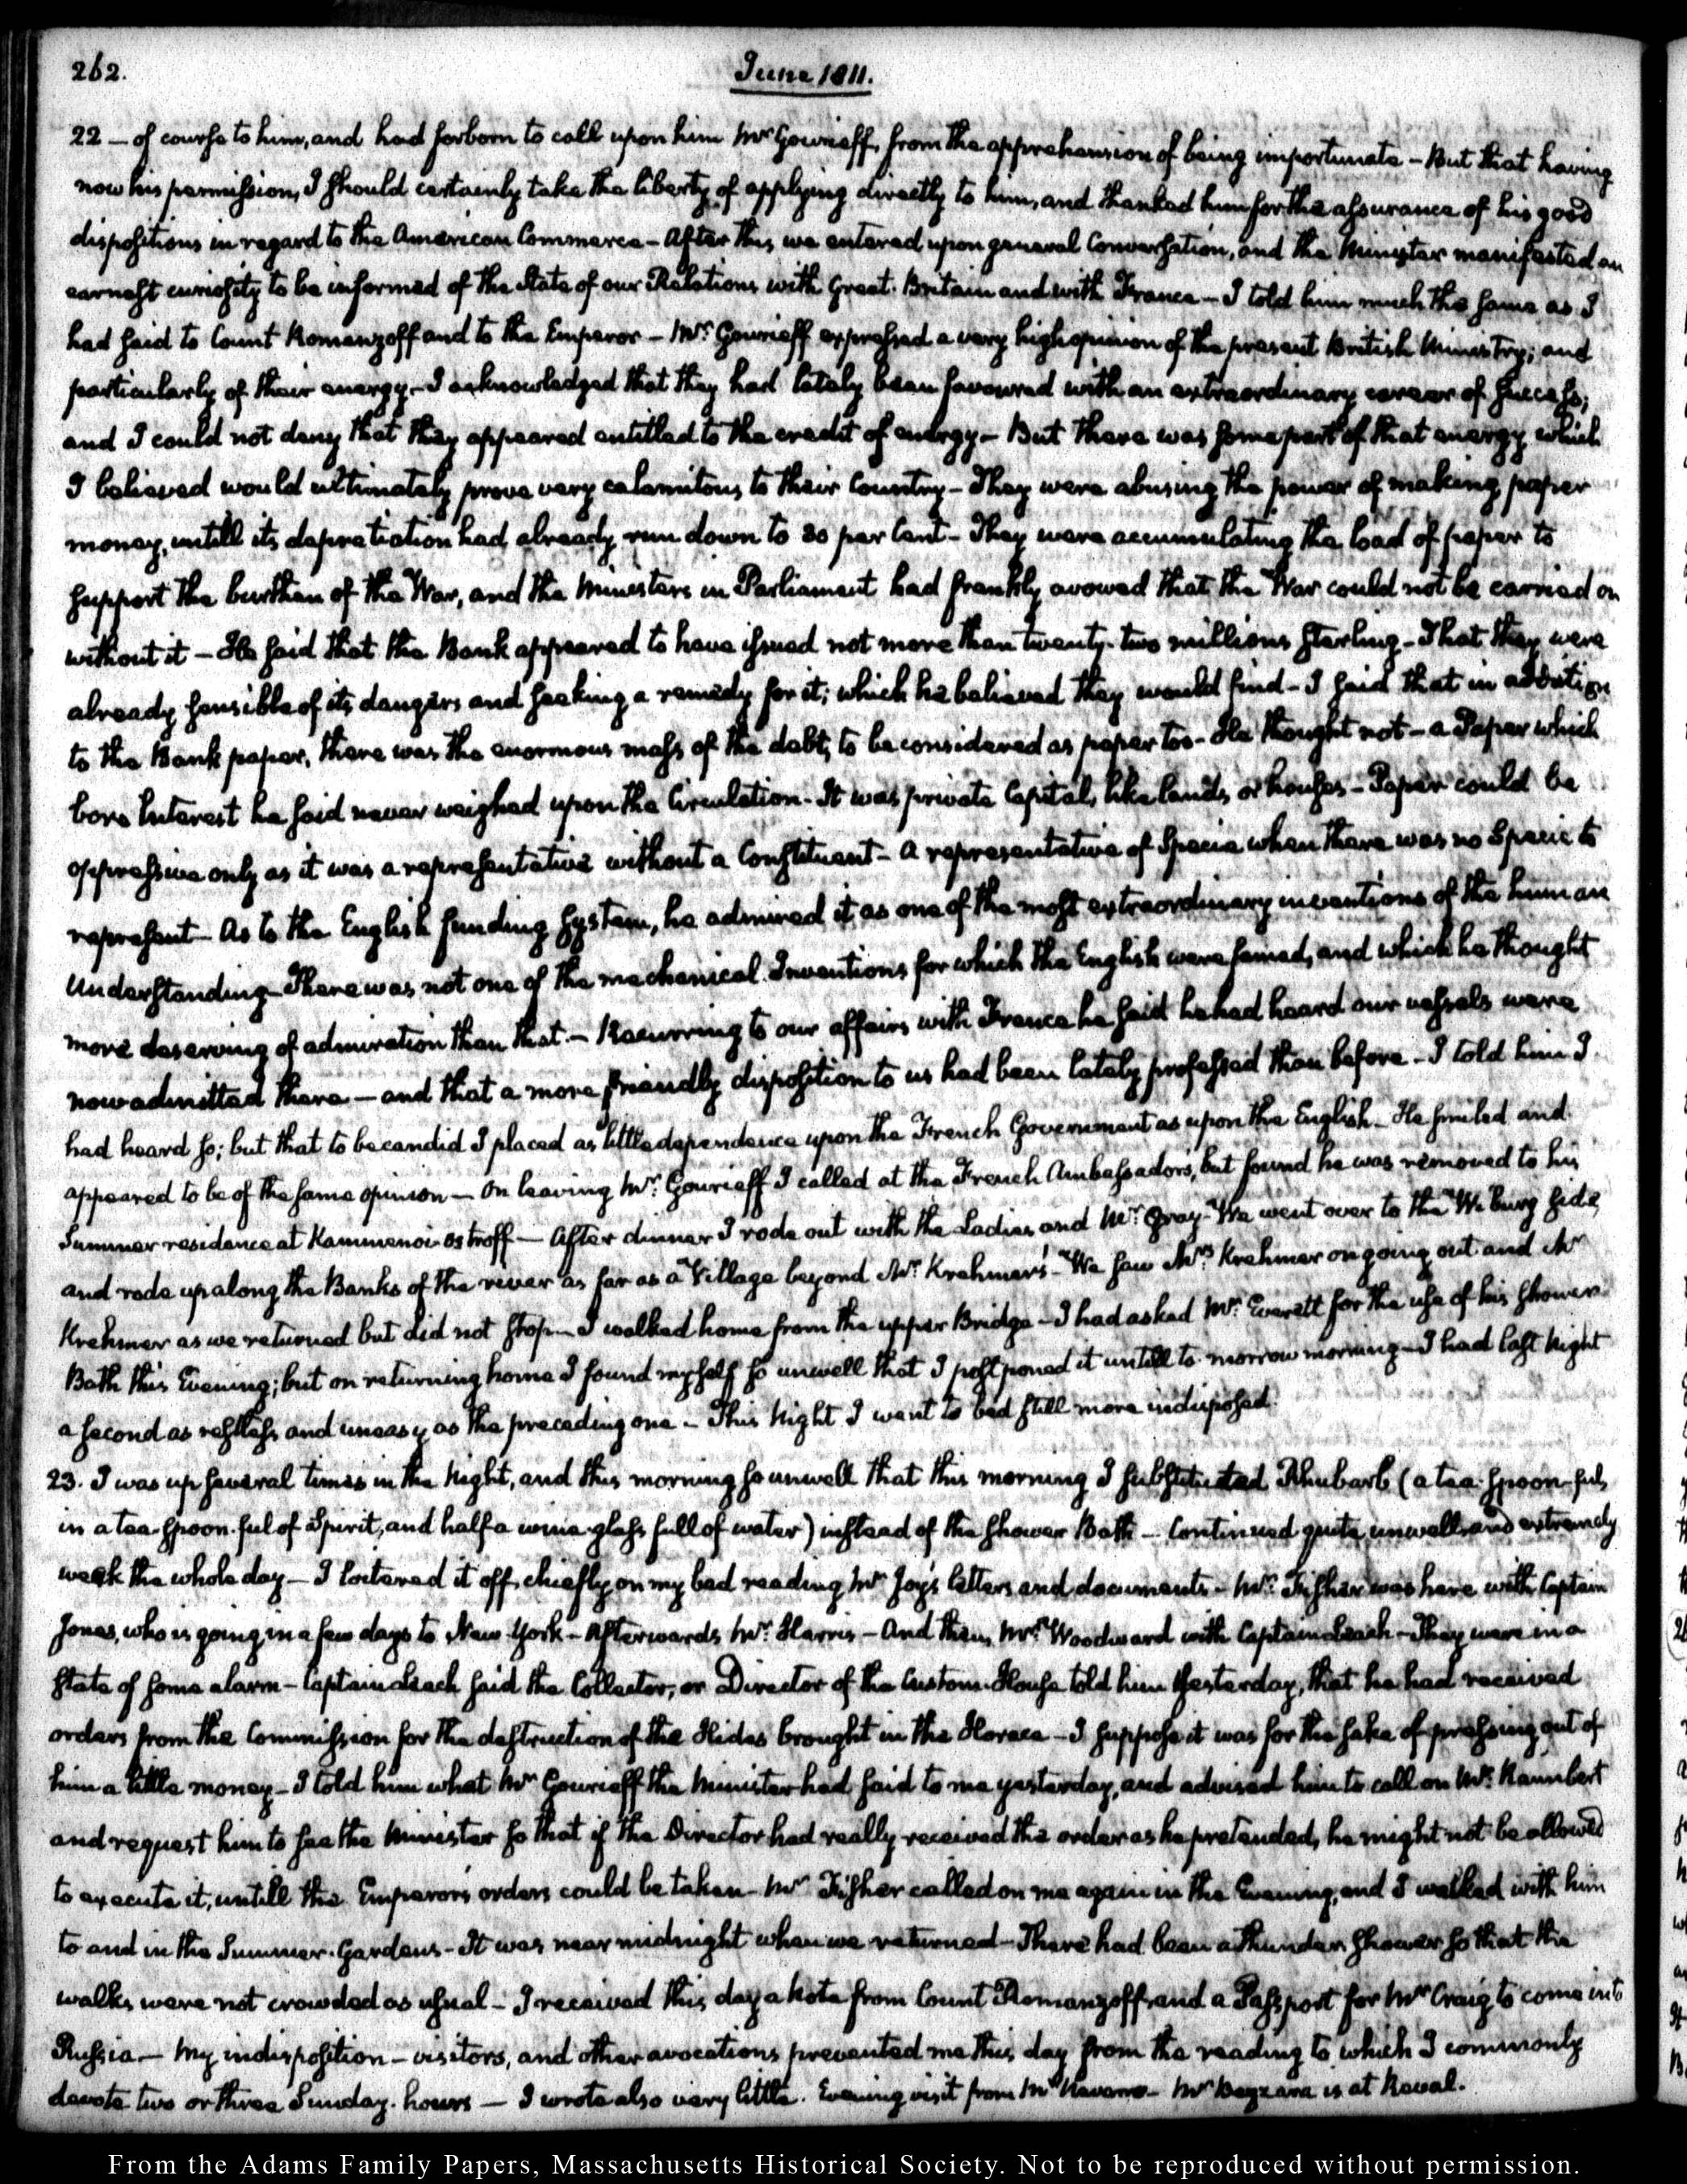 262.
June 1811.
22 — of course to him, and had forborn to call upon him Mr Gourieff, from the apprehension of being importunate - But that having
now his permission, I should certainly take the liberty of applying directly to him, and thanked him for the assurance of his good
dispositions in regard to the American Commerce - After this we entered upon general Conversation, and the Minister manifested an
earnest curiosity to be informed of the State of our Relations with Great-Britain and with France - I told him much the same as I
had said to Count Romanzoff and to the Emperor - Mr: Gourieff expressed a very high opinion of the present British Ministry; and
particularly of their energy - I acknowledged that they had lately been favoured with an extraordinary career of success;
and I could not deny that they appeared entitled to the credit of energy - But there was some part of that energy which
I believed would ultimately prove very calamitous to their Country - They were abusing the power of making paper
money, untill its depretiation had already run down to 30 per Cent - They were accumulating the load of paper to
support the burthen of the War, and the Ministers in Parliament had frankly avowed that the War could not be carried on
without it - He said that the Bank appeared to have issued not more than twenty-two millions Sterling - That they were
already sensible of its dangers and seeking a remedy for it; which he believed they would find - I said that in addition
to the Bank paper, there was the enormous mass of the debt, to be considered as paper too - He thought not - a Paper which
bore Interest he said never weighed upon the Circulation - It was private Capital, like lands, or houses - Paper could be
oppressive only as it was a representative without a Constituent - A representative of Specie when there was no Specie to
represent - As to the English funding System, he admired it as one of the most extraordinary inventions of the human
Understanding - There was not one of the mechanical Inventions for which the English were famed, and which he thought
more deserving of admiration than that. - Recurring to our affairs with France he said he had heard our vessels were
now admitted there — and that a more friendly disposition to us had been lately professed than before - I told him I
had heard so; but that to be candid I placed as little dependence upon the French Government as upon the English - He smiled and
appeared to be of the same opinion - On leaving Mr: Gourieff I called at the French Ambassador's, but found he was removed to his
Summer residence at Kammenoi-ostroff — After dinner I rode out with the Ladies and Mr: Gray - We went over to the Wiburg side,
and rode up along the Banks of the river as far as a Village beyond Mr: Krehmer's - We saw Mrs: Krehmer on going out and Mr
Krehmer as we returned but did not stop - I walked home from the upper Bridge - I had asked Mr: Everett for the use of his shower
Bath this Evening; but on returning home I found myself so unwell that I postponed it untill to-morrow morning - I had last Night
a second as restless and uneasy as the preceding one - This Night I went to bed still more indisposed.
23. I was up several times in the Night, and this morning so unwell that this morning I substituted Rhubarb (a tea-spoon-ful,
in a tea-spoon-ful of Spirit, and half a wine-glass full of water) instead of the Shower Bath - Continued quite unwell and extremely
weak the whole day — I loitered it off, chiefly on my bed reading Mr Joy's letters and documents - Mr: Fisher was here with Captain
Jones, who is going in a few days to New-York - Afterwards Mr: Harris - And then, Mr: Woodward with Captain Leach - They were in a
state of some alarm - Captain Leach said the Collector, or Director of the Custom-House told him Yesterday, that he had received
orders from the Commission for the destruction of the Hides brought in the Horace - I suppose it was for the sake of pressing out of
him a little money - I told him what Mr Gourieff the Minister had said to me yesterday, and advised him to call on Mr: Raimbert
and request him to see the Minister so that if the Director had really received the order as he pretended, he might not be allowed
to execute it, untill the Emperor's orders could be taken - Mr Fisher called on me again in the Evening, and I walked with him
to and in the Summer-Gardens - It was near midnight when we returned - There had been a thunder shower so that the
walks were not crowded as usual - I received this day a Note from Count Romanzoff and a Passport for Mr Craig to come into
Russia — My indisposition - visitors, and other avocations prevented me this day from the reading to which I commonly
devote two or three Sunday-hours — I wrote also very little. Evening visit from Mr Navarro - Mr Bezerra is at Reval.
From the Adams Family Papers, Massachusetts Historical Society. Not to be reproduced without permission.